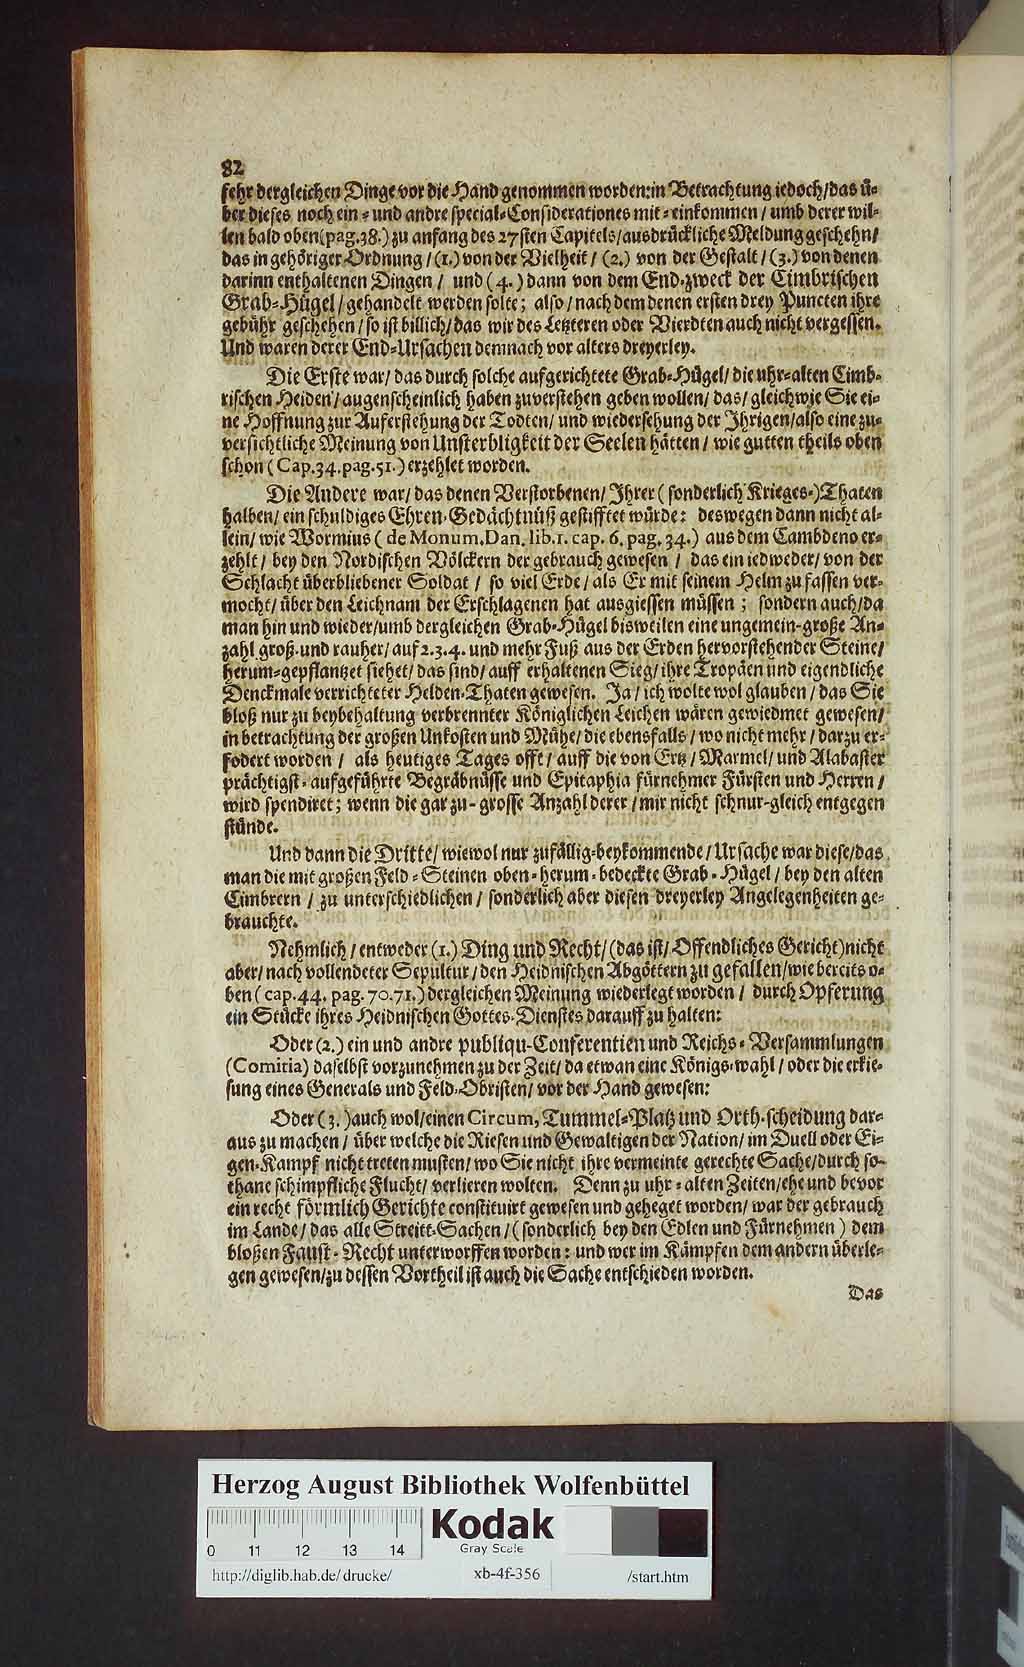 82
sehr dergleichen Dinge vor die Hand genommen worden: in Betrachtung iedoch/das ü-
ber dieses noch ein- und andre special-Considerationes mit-einkommen / umb derer wil-
len bald oben(pag.38.) zu anfang des 27sten Capitels/ausdrückliche Meldung geschehn/
das in gehöriger Ordnung / (1.) von der Vielheit / (2.) von der Gestalt / (3.) von denen
darinn enthaltenen Dingen / und (4.) dann von dem End-zweck der Cimbrischen
Grab-Hügel / gehandelt werden solte; also / nach dem denen ersten drey Puncten ihre
gebühr geschehen / so ist billich / das wir des Letzteren oder Vierdten auch nicht vergessen.
Und waren derer End-Ursachen demnach vor alters dreyerley.
Die Erste war/ das durch solche aufgerichtete Grab-Hügel/ die uhr-alten Cimb-
rischen Heiden / augenscheinlich haben zuverstehen geben wollen / das / gleichwie Sie ei-
ne Hoffnung zur Auferstehung der Todten/ und wiedersehung der Ihrigen/also eine zu-
versichtliche Meinung von Unsterbligkeit der Seelen hätten / wie gutten theils oben
schon ( Cap.34.pag.51.) erzehlet worden.
Die Andere war/ das denen Verstorbenen/ Ihrer ( sonderlich Krieges-)Thaten
halben/ ein schuldiges Ehren-Gedächtnüß gestifftet würde: deswegen dann nicht al-
lein/ wie Wormius ( de Monum.Dan. lib.1. cap. 6. pag. 34.) aus dem Cambdeno er-
zehlt / bey den Nordischen Völckern der gebrauch gewesen / das ein iedweder/ von der
Schlacht überbliebener Soldat / so viel Erde/ als Er mit seinem Helm zu fassen ver-
mocht/ über den Leichnam der Erschlagenen hat ausgiessen müssen ; sondern auch/da
man hin und wieder/umb dergleichen Grab-Hügel bisweilen eine ungemein-große An-
zahl groß-und rauher/ auf 2.3.4. und mehr Fuß aus der Erden hervorstehender Steine/
herum-gepflantzet siehet/ das sind/ auff erhaltenen Sieg/ ihre Tropäen und eigendliche
Denckmale verrichteter Helden-Thaten gewesen. Ja/ ich wolte wol glauben / das Sie
bloß nur zu beybehaltung verbrennter Königlichen Leichen wären gewiedmet gewesen/
in betrachtung der großen Unkosten und Mühe/ die ebensfalls / wo nicht mehr / darzu er-
fodert worden / als heutiges Tages offt/ auff die von Ertz / Marmel/ und Alabaster
prächtigst-aufgeführte Begräbnüsse und Epitaphia fürnehmer Fürsten und Herren /
wird spendiret; wenn die gar zu-grosse Anzahl derer / mir nicht schnur-gleich entgegen
stünde.
Und dann die Dritte/ wiewol nur zufällig-beykommende / Ursache war diese/das
man die mit großen Feld-Steinen oben-herum-bedeckte Grab-Hügel / bey den alten
Cimbrern / zu unterschiedlichen / sonderlich aber diesen dreyerley Angelegenheiten ge-
brauchte.
Nehmlich / entweder (1.) Ding und Recht/ (das ist/ Offendliches Gericht)nicht
aber/ nach vollendeter Sepultur / den Heidnischen Abgöttern zu gefallen/wie bereits o-
ben ( cap.44. pag. 70.71.) dergleichen Meinung wiederlegt worden / durch Opferung
ein Stücke ihres Heidnischen Gottes-Dienstes darauff zu halten:
Oder (2.) ein und andre publiqu-Conferentien und Reichs-Versammlungen
(Comitia) daselbst vorzunehmen zu der Zeit/ da etwan eine Königs-wahl / oder die erkie-
sung eines Generals und Feld-Obristen/ vor der Hand gewesen:
Oder (3.)auch wol/einen Circum, Tummel-Platz und Orth-scheidung dar-
aus zu machen / über welche die Riesen und Gewaltigen der Nation/ im Duell oder Ei-
gen-Kampf nicht treten musten/ wo Sie nicht ihre vermeinte gerechte Sache/durch so-
thane schimpfliche Flucht/ verlieren wolten. Denn zu uhr-alten Zeiten/ehe und bevor
ein recht förmlich Gerichte constituirt gewesen und geheget worden/ war der gebrauch
im Lande / das alle Streitt-Sachen / (sonderlich bey den Edlen und Fürnehmen ) dem
bloßen Faust-Recht unterworffen worden: und wer im Kämpfen dem andern überle-
gen gewesen/zu dessen Vortheil ist auch die Sache entschieden worden.
Das
Herzog August Bibliothek Wolfenbüttel
0 11 12 13 14
Kodak
Gray Scale
http://diglib.hab.de/drucke/ xb-4f-356 /start.htm